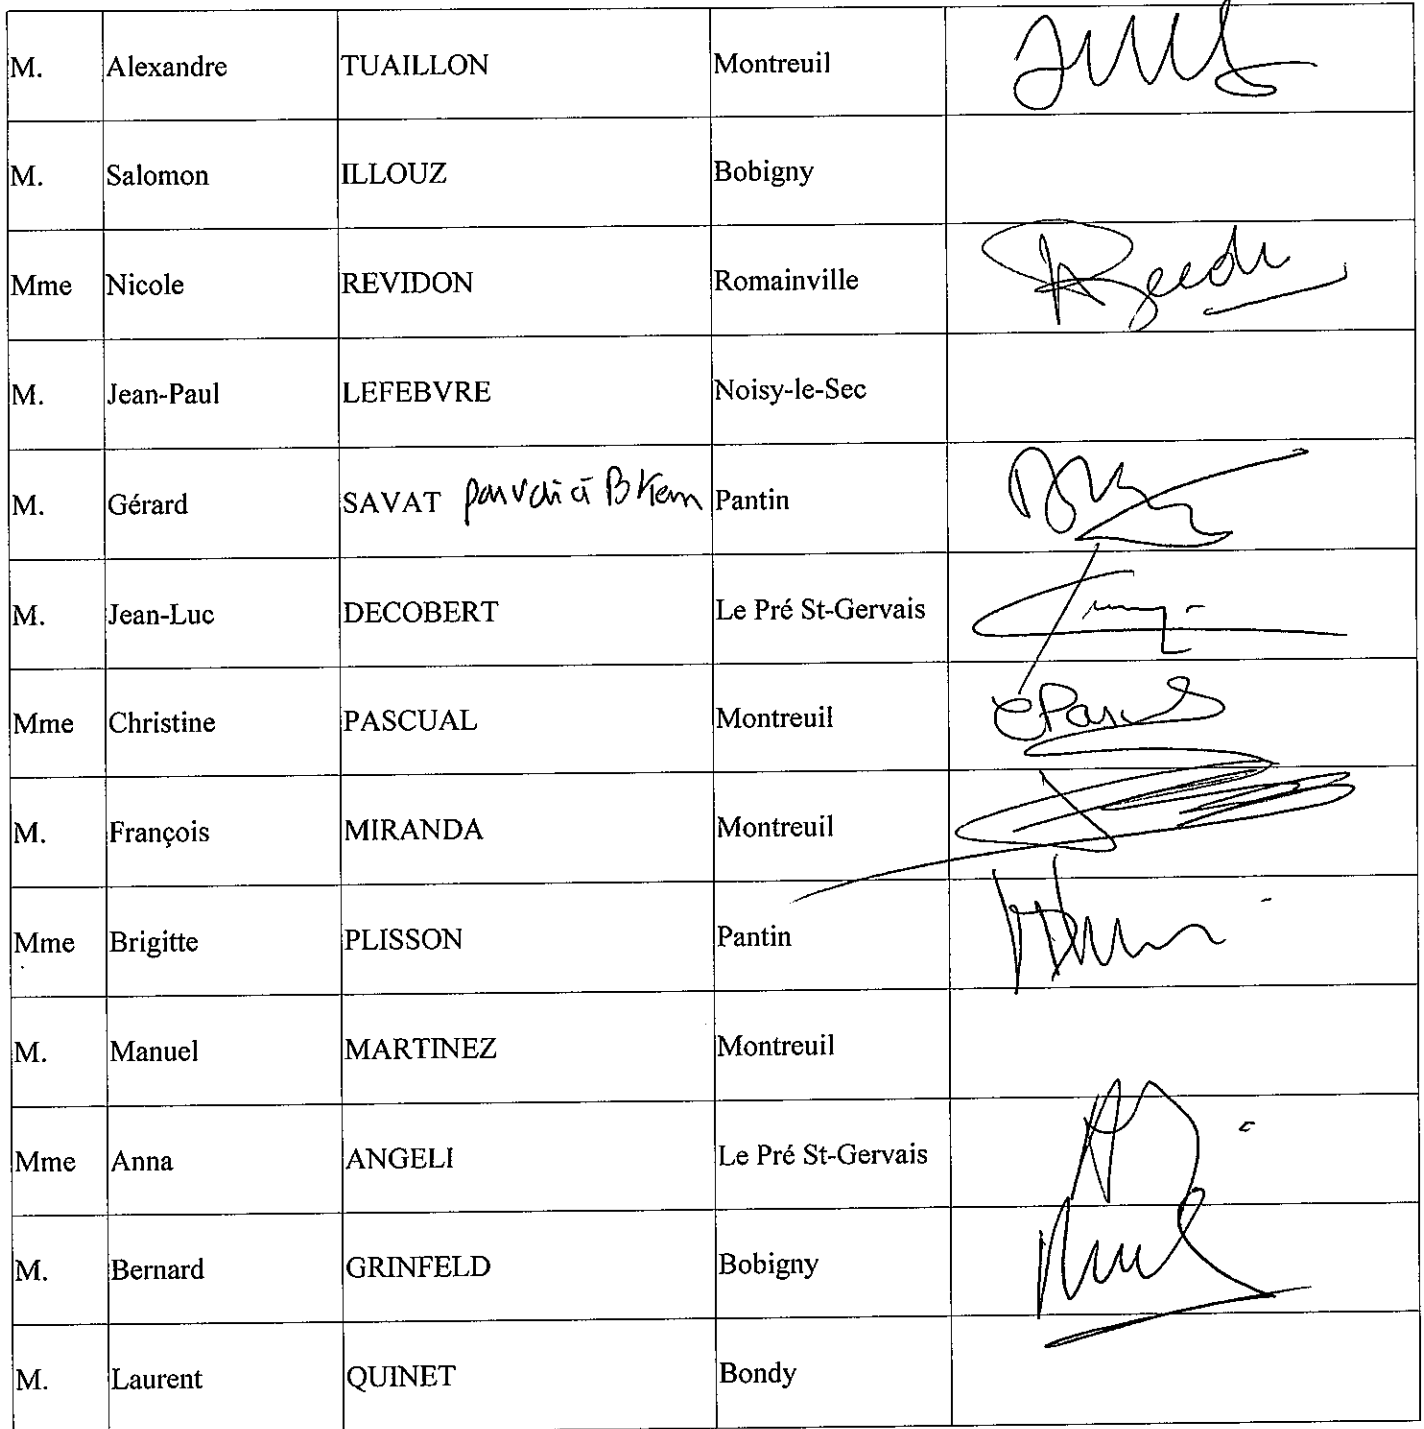 M. Alexandre TUAILLON Montreuil
M. Salomon ILLOUZ Bobigny
Mme Nicole REVIDON Romainville
M. Jean-Paul LEFEBVRE Noisy-le-Sec
M. Gérard SAVAT pouvoir à B Kern Pantin
M. Jean-Luc DECOBERT Le Pré St-Gervais
Mme Christine PASCUAL Montreuil
M. François MIRANDA Montreuil
Mme Brigitte PLISSON Pantin
M. Manuel MARTINEZ Montreuil
Mme Anna ANGELI Le Pré St-Gervais
M. Bernard GRINFELD Bobigny
M. Laurent QUINET Bondy